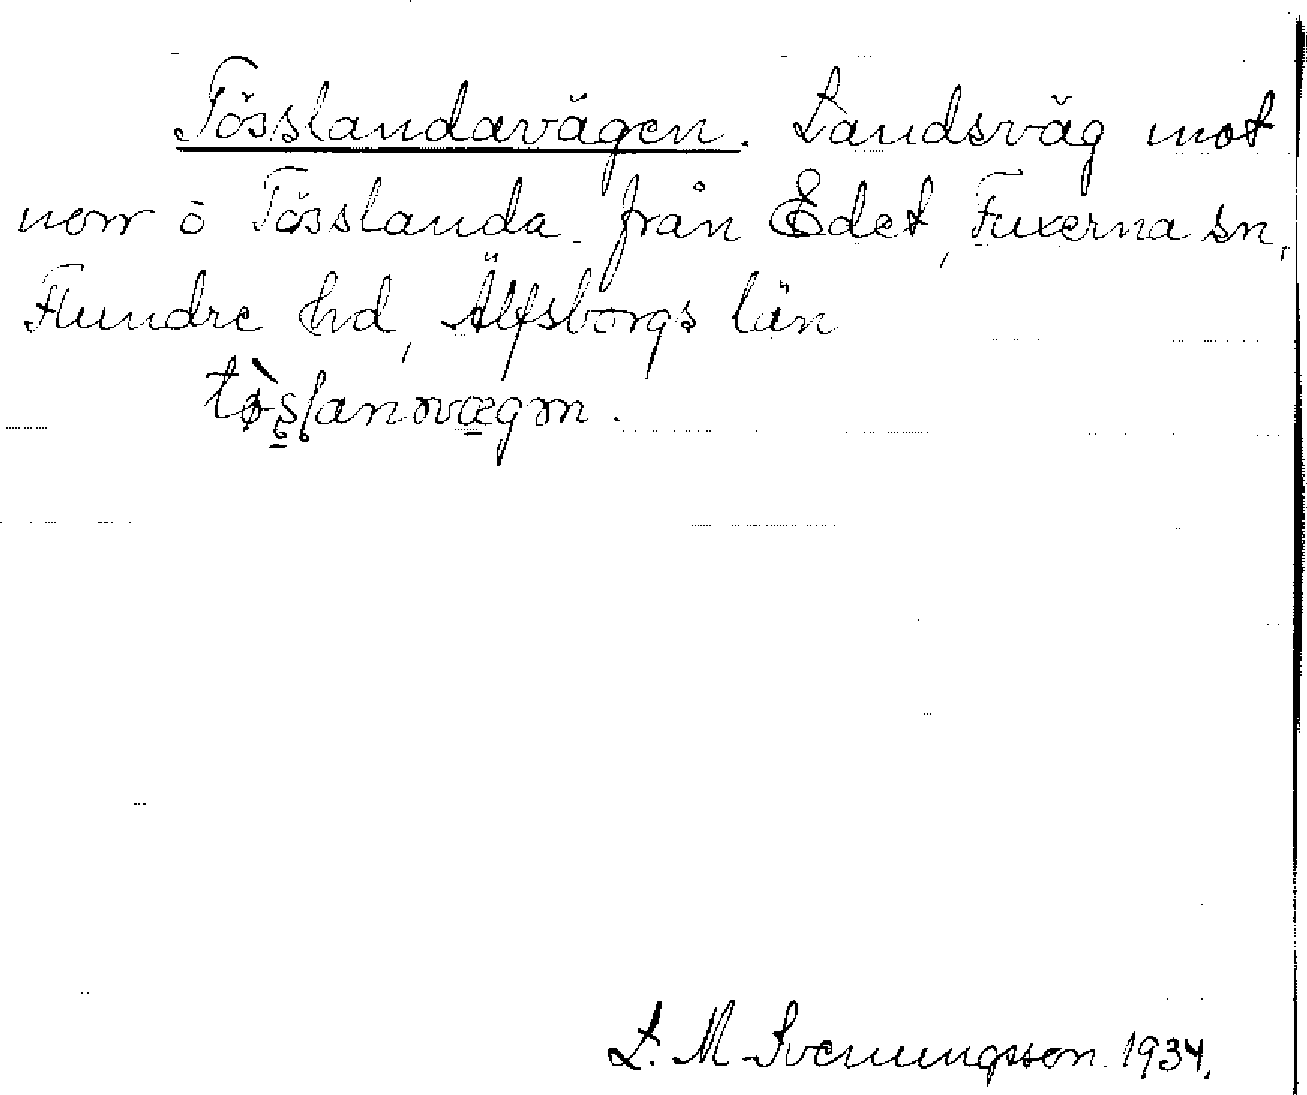 Tösslandavägen. Landsväg mot
norr ö Tösslanda från Edet, Fuxerna sn,
Flundre hd, Älfsborgs län
L. M. Svenungsson 1934.